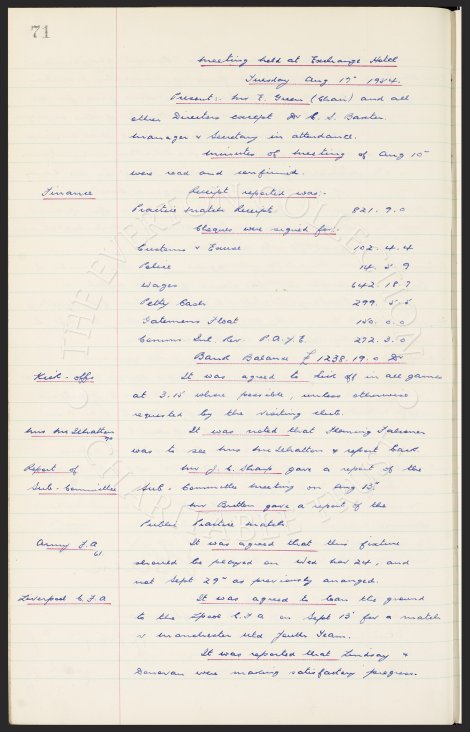 71
Meeting held at Exchange Hotel
Tuesday Aug 17th 1954.
Present:- Mr E. Green (Chair) and all
other Directors except Dr C. S. Baxter.
Manager & Secretary in attendance.
Minutes of Meeting of Aug 10th
were read and confirmed.
Finance
Receipt reported was:-
Practice Match Receipts 821. 9. 0
Cheques were signed for:-
Customs & Excise 102. 4. 4
Police 14. 5. 9
Wages 642. 18. 7
Petty Cash 299. 5. 5
Gatemens Float 150. 0. 0
Comms. Inl. Rev. P.A.Y.E. 272. 3. 0
Bank Balance £ 1238. 19. 0 Dr
Kick-offs
It was agreed to kick off in all games
at 3.15 where possible, unless otherwise
requested by the visiting club.
It was noted that Fleming Falconer
was to see Mrs & report back.
Report of
Sub-Committee
Mr J. C. Sharp gave a report of the
Sub-Committee meeting on Aug 13th.
Mr Britton gave a report of the
Public Practice Match.
Army F.A.
It was agreed that this fixture
should be played on Wed Nov 24, and
not Sept 29th as previously arranged.
Liverpool C.F.A
It was agreed to loan the ground
to the Lpool C.F.A on Sept 13th for a match
v Manchester Utd Youth Team.
It was reported that Lindsay &
Donovan were making satisfactory progress.
THE EVERTON COLLECTION
CHARITABLE TRUST